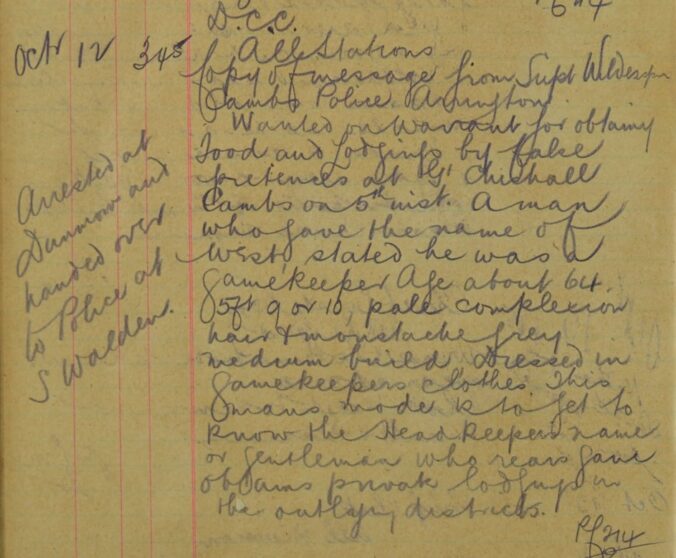 D.C.C.
Octr 12 345 All Stations
Copy of message from Supt
Cambs Police Arrington
Wanted on Warrant for obtaing
Food and Lodgings by false
pretences at Gt Chishall
Cambs on 5th inst. A man
who gave the name of
West, stated he was a
gamekeeper Age about 64.
5ft 9 or 10, pale complexion
hair & moustache grey
medium build, Dressed in
gamekeepers clothes This
mans mode is to get to
know the Head Keepers name
or gentleman who rears game
obtains private lodgings in
the outlying districts.
Arrested at
Dunmow and
handed over
to Police at
S Walden.